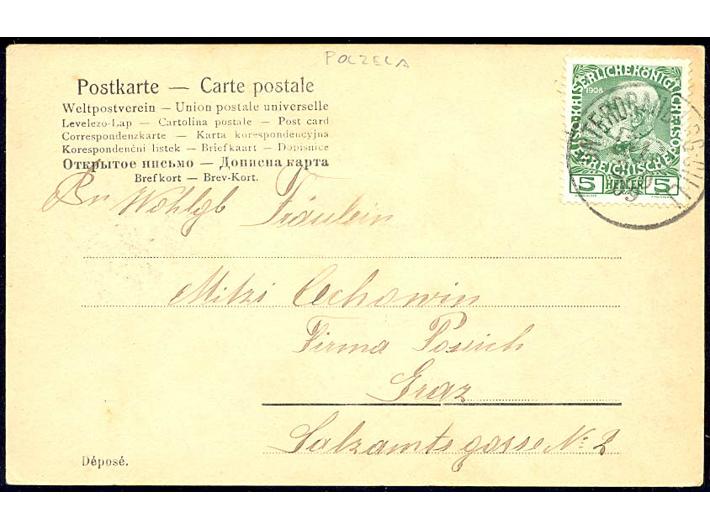 POLZELA
Postkarte — Carte postale
Weltpostverein — Union postale universelle
Levelezo-Lap — Cartolina postale — Post card
Correspondenzkarte — Karta korespondencyjna
Korespondenční listek — Briefkaart — Dopisnice
Открытое письмо — Дописна карта
Brefkort — Brev-Kort.
1908
5 HELLER 5
Wohlgb Fräulein
Mitzi Cechowin
Firma
Graz
Salzamtsgasse No 2
Déposé.